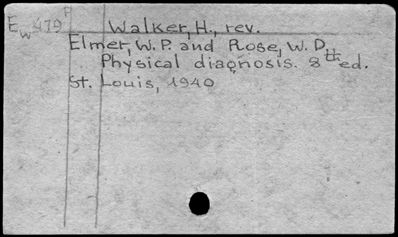 Ew479P Walker, H., rev.
Elmer, W.P. and Rose, W.D.
Physical diagnosis. 8th ed.
St. Louis, 1940